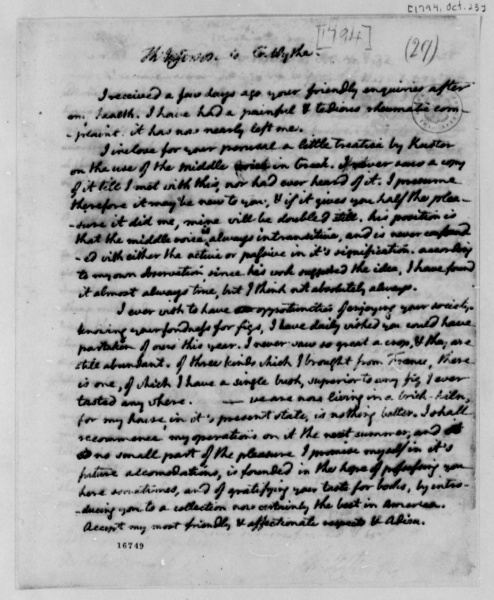 [1794. Oct. 23]
[1794]
(27)
Th: Jefferson. to G. Wythe.
I received a few days ago your friendly enquiries after
my health. I have had a painful & tedious rheumatic com-
-plaint. it has now nearly left me.
I inclose for your perusal a little treatise by Kuster
on the use of the middle voice in Greek. I never saw a copy
of it till I met with this, nor had ever heard of it. I presume
therefore it may be new to you, & if it gives you half the plea-
-sure it did me, mine will be doubled still. his position is
that the middle voice is always intransitive, and is never confound
-ed with either the active or passive in it's signification. according
to my own observation since his work suggested the idea, I have found
it almost always true, but I think not absolutely always.
I ever wish to have opportunities of enjoying your society,
knowing your fondness for figs, I have daily wished you could have
partaken of ours this year. I never saw so great a crop, & they are
still abundant. of three kinds which I brought from France, there
is one, of which I have a single bush, superior to any fig I ever
tasted any where. — we are now living in a brick-kiln,
for my house, in it's present state, is nothing better. I shall
recommence my operations on it the next summer, and
no small part of the pleasure I promise myself in it's
future accomodations, is founded in the hope of possessing you
here sometimes, and of gratifying your taste for books, by intro-
-ducing you to a collection now certainly the best in America.
Accept my most friendly & affectionate respects & Adieu.
16749